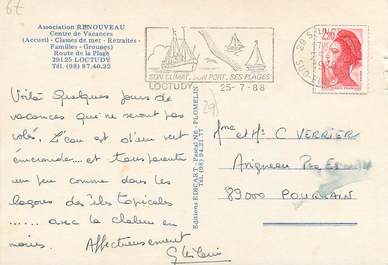 6E
Association RENOUVEAU
Centre de Vacances
(Accueil - Classes de mer - Retraités -
Familles - Groupes)
Route de la Plage
29125 LOCTUDY
Tél. (98) 87.40.22
SON CLIMAT. SON PORT. SES PLAGES
LOCTUDY 25-7-88
2,20
Voilà quelques jours de
vacances qui ne seront pas
volés. L'eau est d'un vert
émeraude... et transparente
un peu comme dans les
lagons des îles tropicales
...... avec la chaleur en
moins. Affectueusement
Ghislaine
29
Mme et Mr C VERRIER
83000